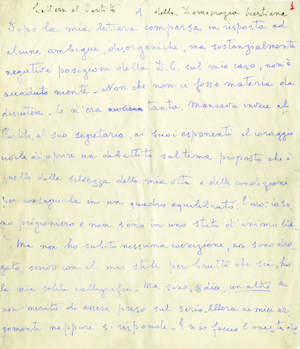 Lettera al Partito 1 della Democrazia Cristiana
Dopo la mia lettera comparsa in risposta ad
alcune ambigue, disorganiche, ma sostanzialmente
negative posizioni della D.C. sul mio caso, non è
accaduto niente. Non che non ci fosse materia da
discutere. Ce n'era tanta. Mancava invece al
Partito, al suo segretario, ai suoi esponenti il coraggio
civile di aprire un dibattito sul tema proposto che è
quello della salvezza della mia vita e delle condizioni
per conseguirla in un quadro equilibrato. È vero: io sono
prigioniero e non sono in uno stato d'animo lieto.
Ma non ho subito nessuna coercizione, non sono dro
gato, scrivo con il mio stile per brutto che sia, ho
la mia solita calligrafia. Ma sono, si dice, un altro e
non merito di essere preso sul serio. Allora ai miei ar
gomenti neppure si risponde. E se io faccio l'onesta do